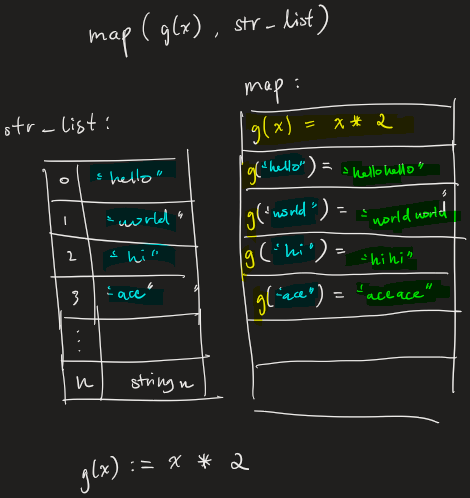 map ( g(x) , str_list )
str_list :
0 "hello"
1 "world"
2 "hi"
3 "ace"
⋮
n string n
map :
g(x) = x * 2
g("hello") = "hellohello"
g("world") = "world world"
g("hi") = "hihi"
g("ace") = "aceace"
g(x) := x * 2